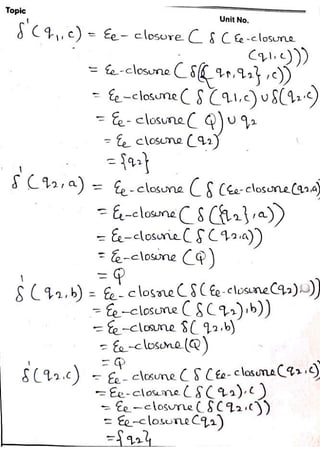 Topic
Unit No.
δ'(q1,c) = Ee- closure (δ(Ee-closure
(q1,c)))
= Ee-closure (δ({q1,q2},c))
= Ee-closure (δ(q1,c) ∪ δ(q2,c)
= Ee-closure (φ) ∪ q2
= Ee closure (q2)
= {q2}
δ'(q2,a) = Ee-closure (δ(Ee-closure(q2,a)
= Ee-closure (δ({q2},a))
= Ee-closure (δ(q2,a))
= Ee-closure (φ)
= φ
δ'(q2,b) = Ee-closure (δ(Ee-closure(q2)))
= Ee-closure (δ(q2),b))
= Ee-closure δ(q2,b)
= Ee-closure (φ)
= φ
δ'(q2,c) = Ee-closure (δ(Ee-closure(q2,c)
= Ee-closure (δ(q2),c)
= Ee-closure (δ(q2,c))
= Ee-closure (q2)
= {q2}